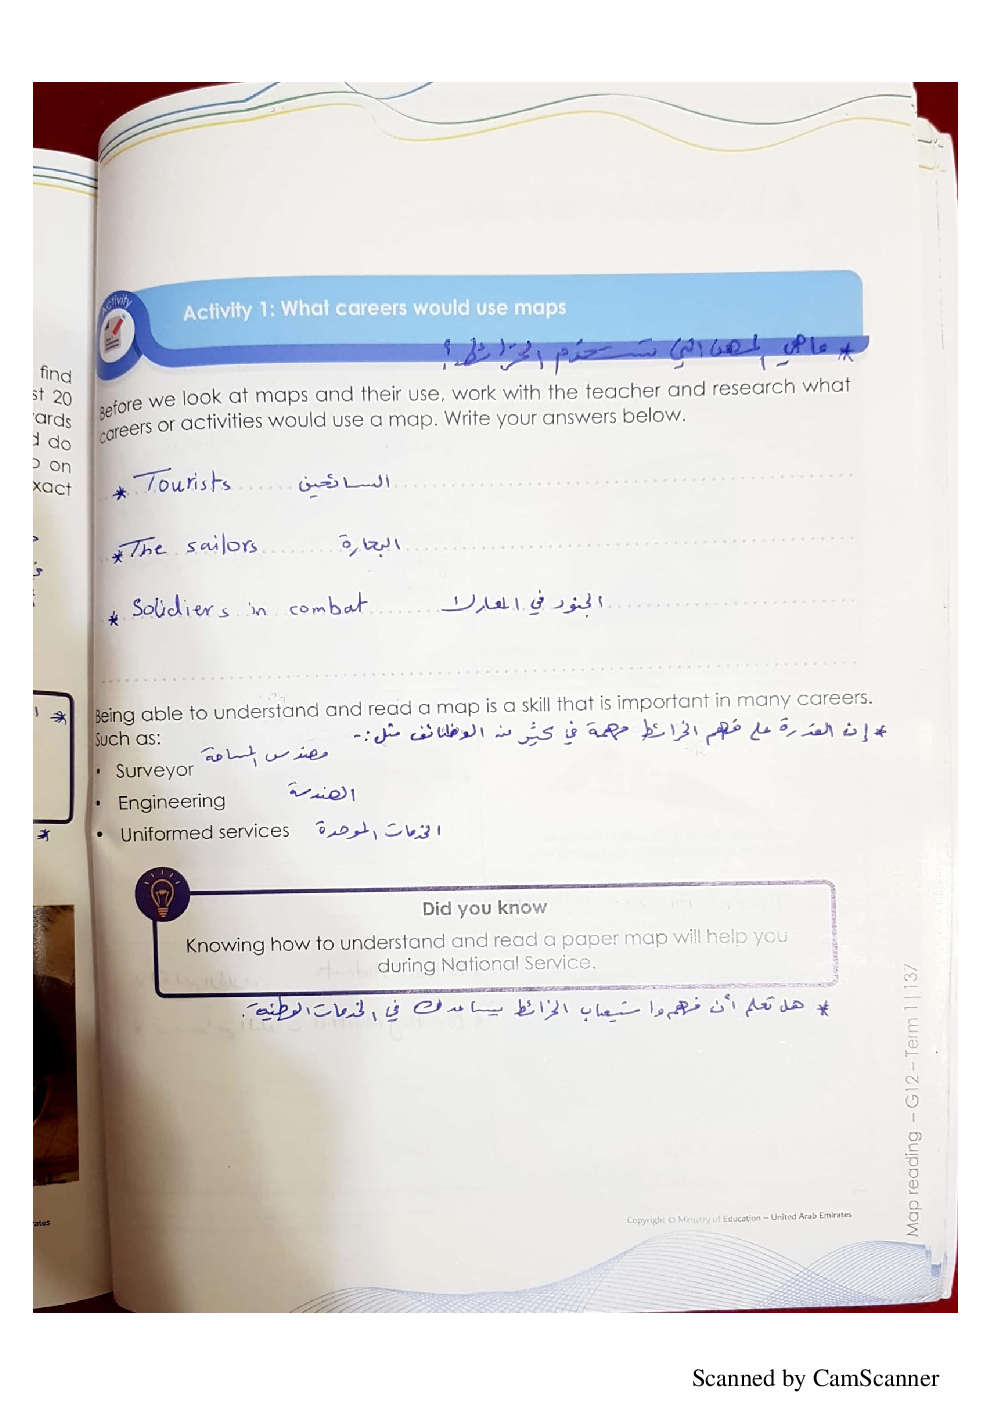 find
st 20
ards
d do
o on
xact
Activity
Activity 1: What careers would use maps
* ماهي المهن التي تستخدم الخرائط؟
Before we look at maps and their use, work with the teacher and research what
careers or activities would use a map. Write your answers below.
* Tourists السائحين
* The sailors البحارة
* Solidiers in combat الجنود في المعارك
Being able to understand and read a map is a skill that is important in many careers.
Such as:
* إن القدرة على فهم الخرائط مهمة في كثير من الوظائف مثل :-
• Surveyor مهندس المساحة
• Engineering الهندسة
• Uniformed services الخدمات الموحدة
Did you know
Knowing how to understand and read a paper map will help you
during National Service.
* هل تعلم أن فهم واستيعاب الخرائط يساعدك في الخدمات الوطنية.
Map reading – G12 – Term 1 | 137
Copyright © Ministry of Education – United Arab Emirates
rates
Scanned by CamScanner